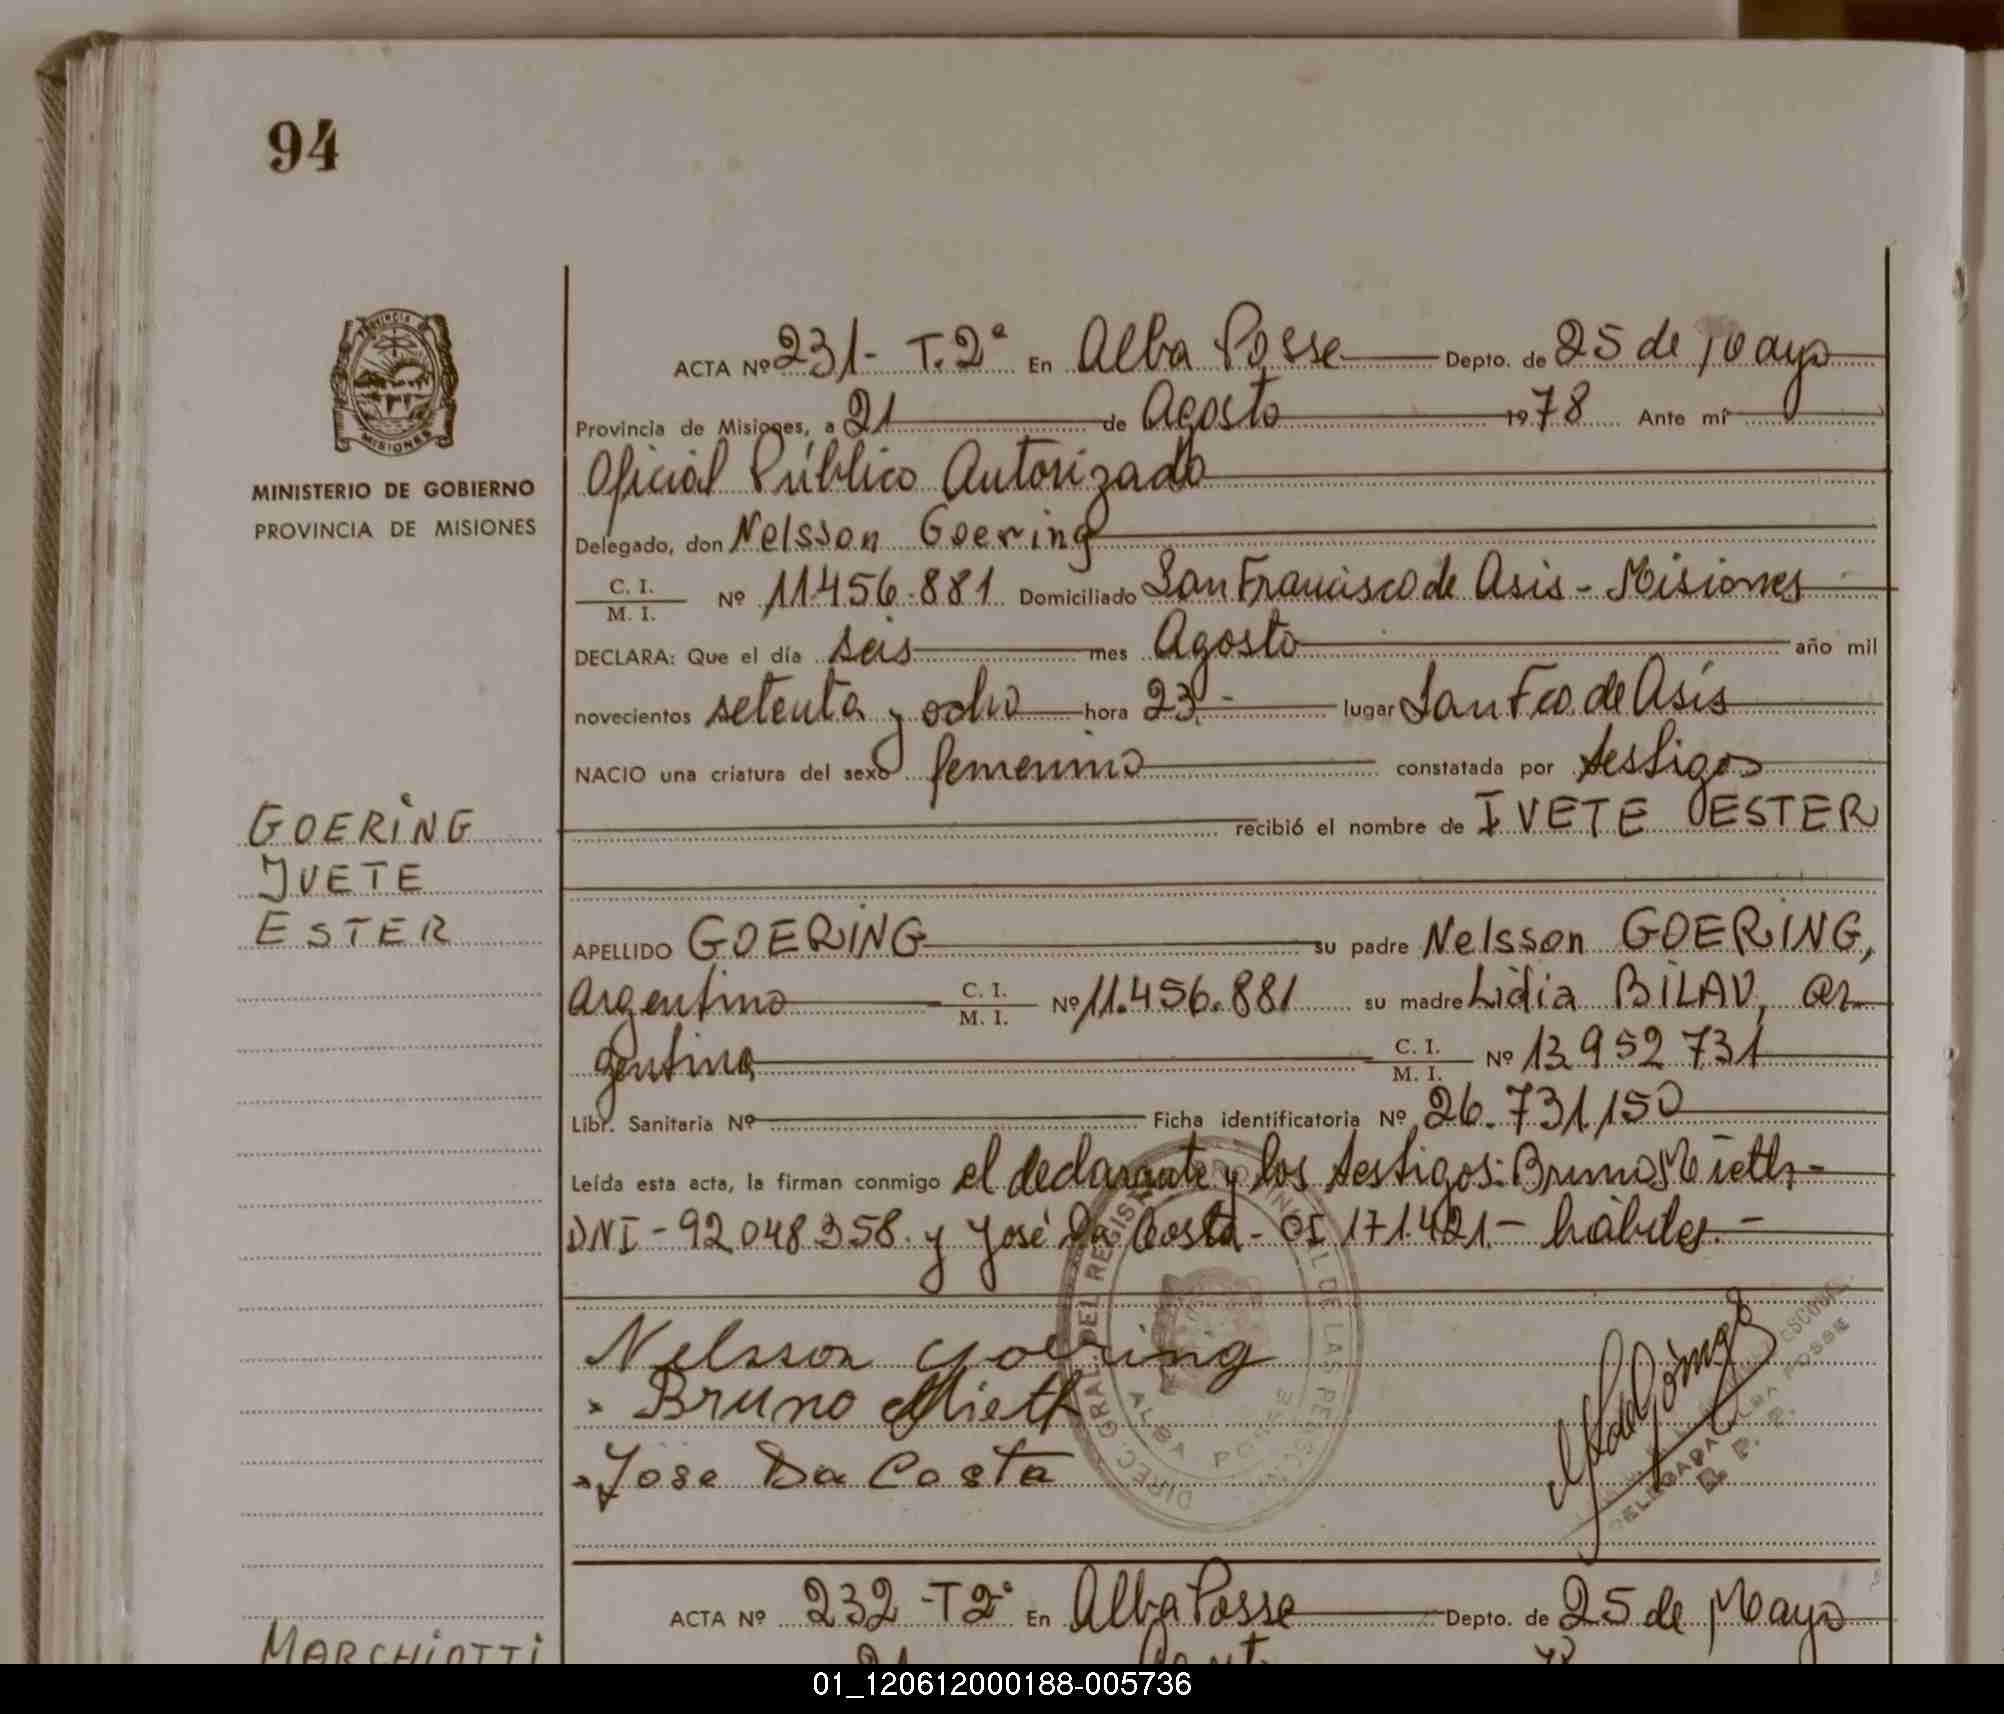 94
PROVINCIA
MISIONES
MINISTERIO DE GOBIERNO
PROVINCIA DE MISIONES
GOERING
IVETE
ESTER
ACTA Nº 231- T. 2ª En Alba Posse Depto. de 25 de Mayo
Provincia de Misiones, a 21 de Agosto 1978 Ante mí
Oficial Público Autorizado
Delegado, don Nelsson Goering
C. I.
M. I. Nº 11.456.881 Domiciliado San Francisco de Asis - Misiones
DECLARA: Que el día seis mes Agosto año mil
novecientos setenta y ocho hora 23.- lugar San Fco. de Asís
NACIO una criatura del sexo femenino constatada por testigos
recibió el nombre de IVETE ESTER
APELLIDO GOERING su padre Nelsson GOERING,
argentino C. I.
M. I. Nº 11.456.881 su madre Lidia BILAU, ar
gentina C. I.
M. I. Nº 13 952 731
Libr. Sanitaria Nº Ficha identificatoria Nº 26.731.150
Leída esta acta, la firman conmigo el declarante y los testigos: Bruno Mieth -
DNI - 92 048 358. y José Da Costa - CI 171.421 - hábiles. -
Nelsson Goering
Bruno Mieth
José Da Costa
DIREC. GRAL. DEL REGISTRO PROVINCIAL DE LAS PERSONAS
ALBA POSSE
DELEGADA
ALBA POSSE
ACTA Nº 232 - T 2ª En Alba Posse Depto. de 25 de Mayo
MARCHIOTTI
01_120612000188-005736